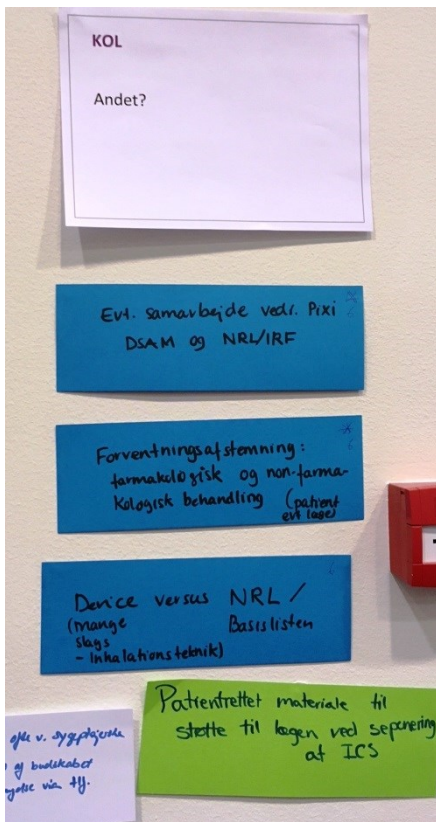 KOL
Andet?
Evt. samarbejde vedr. Pixi
DSAM og NRL/IRF
Forventningsafstemning:
farmakologisk og non-farma-
kologisk behandling (patient
evt læge)
Device versus NRL /
(mange Basislisten
slags
- Inhalationsteknik)
Patientrettet materiale til
støtte til lægen ved seponering
af ICS
ofte v. sygeplejerske
og budskabet
via